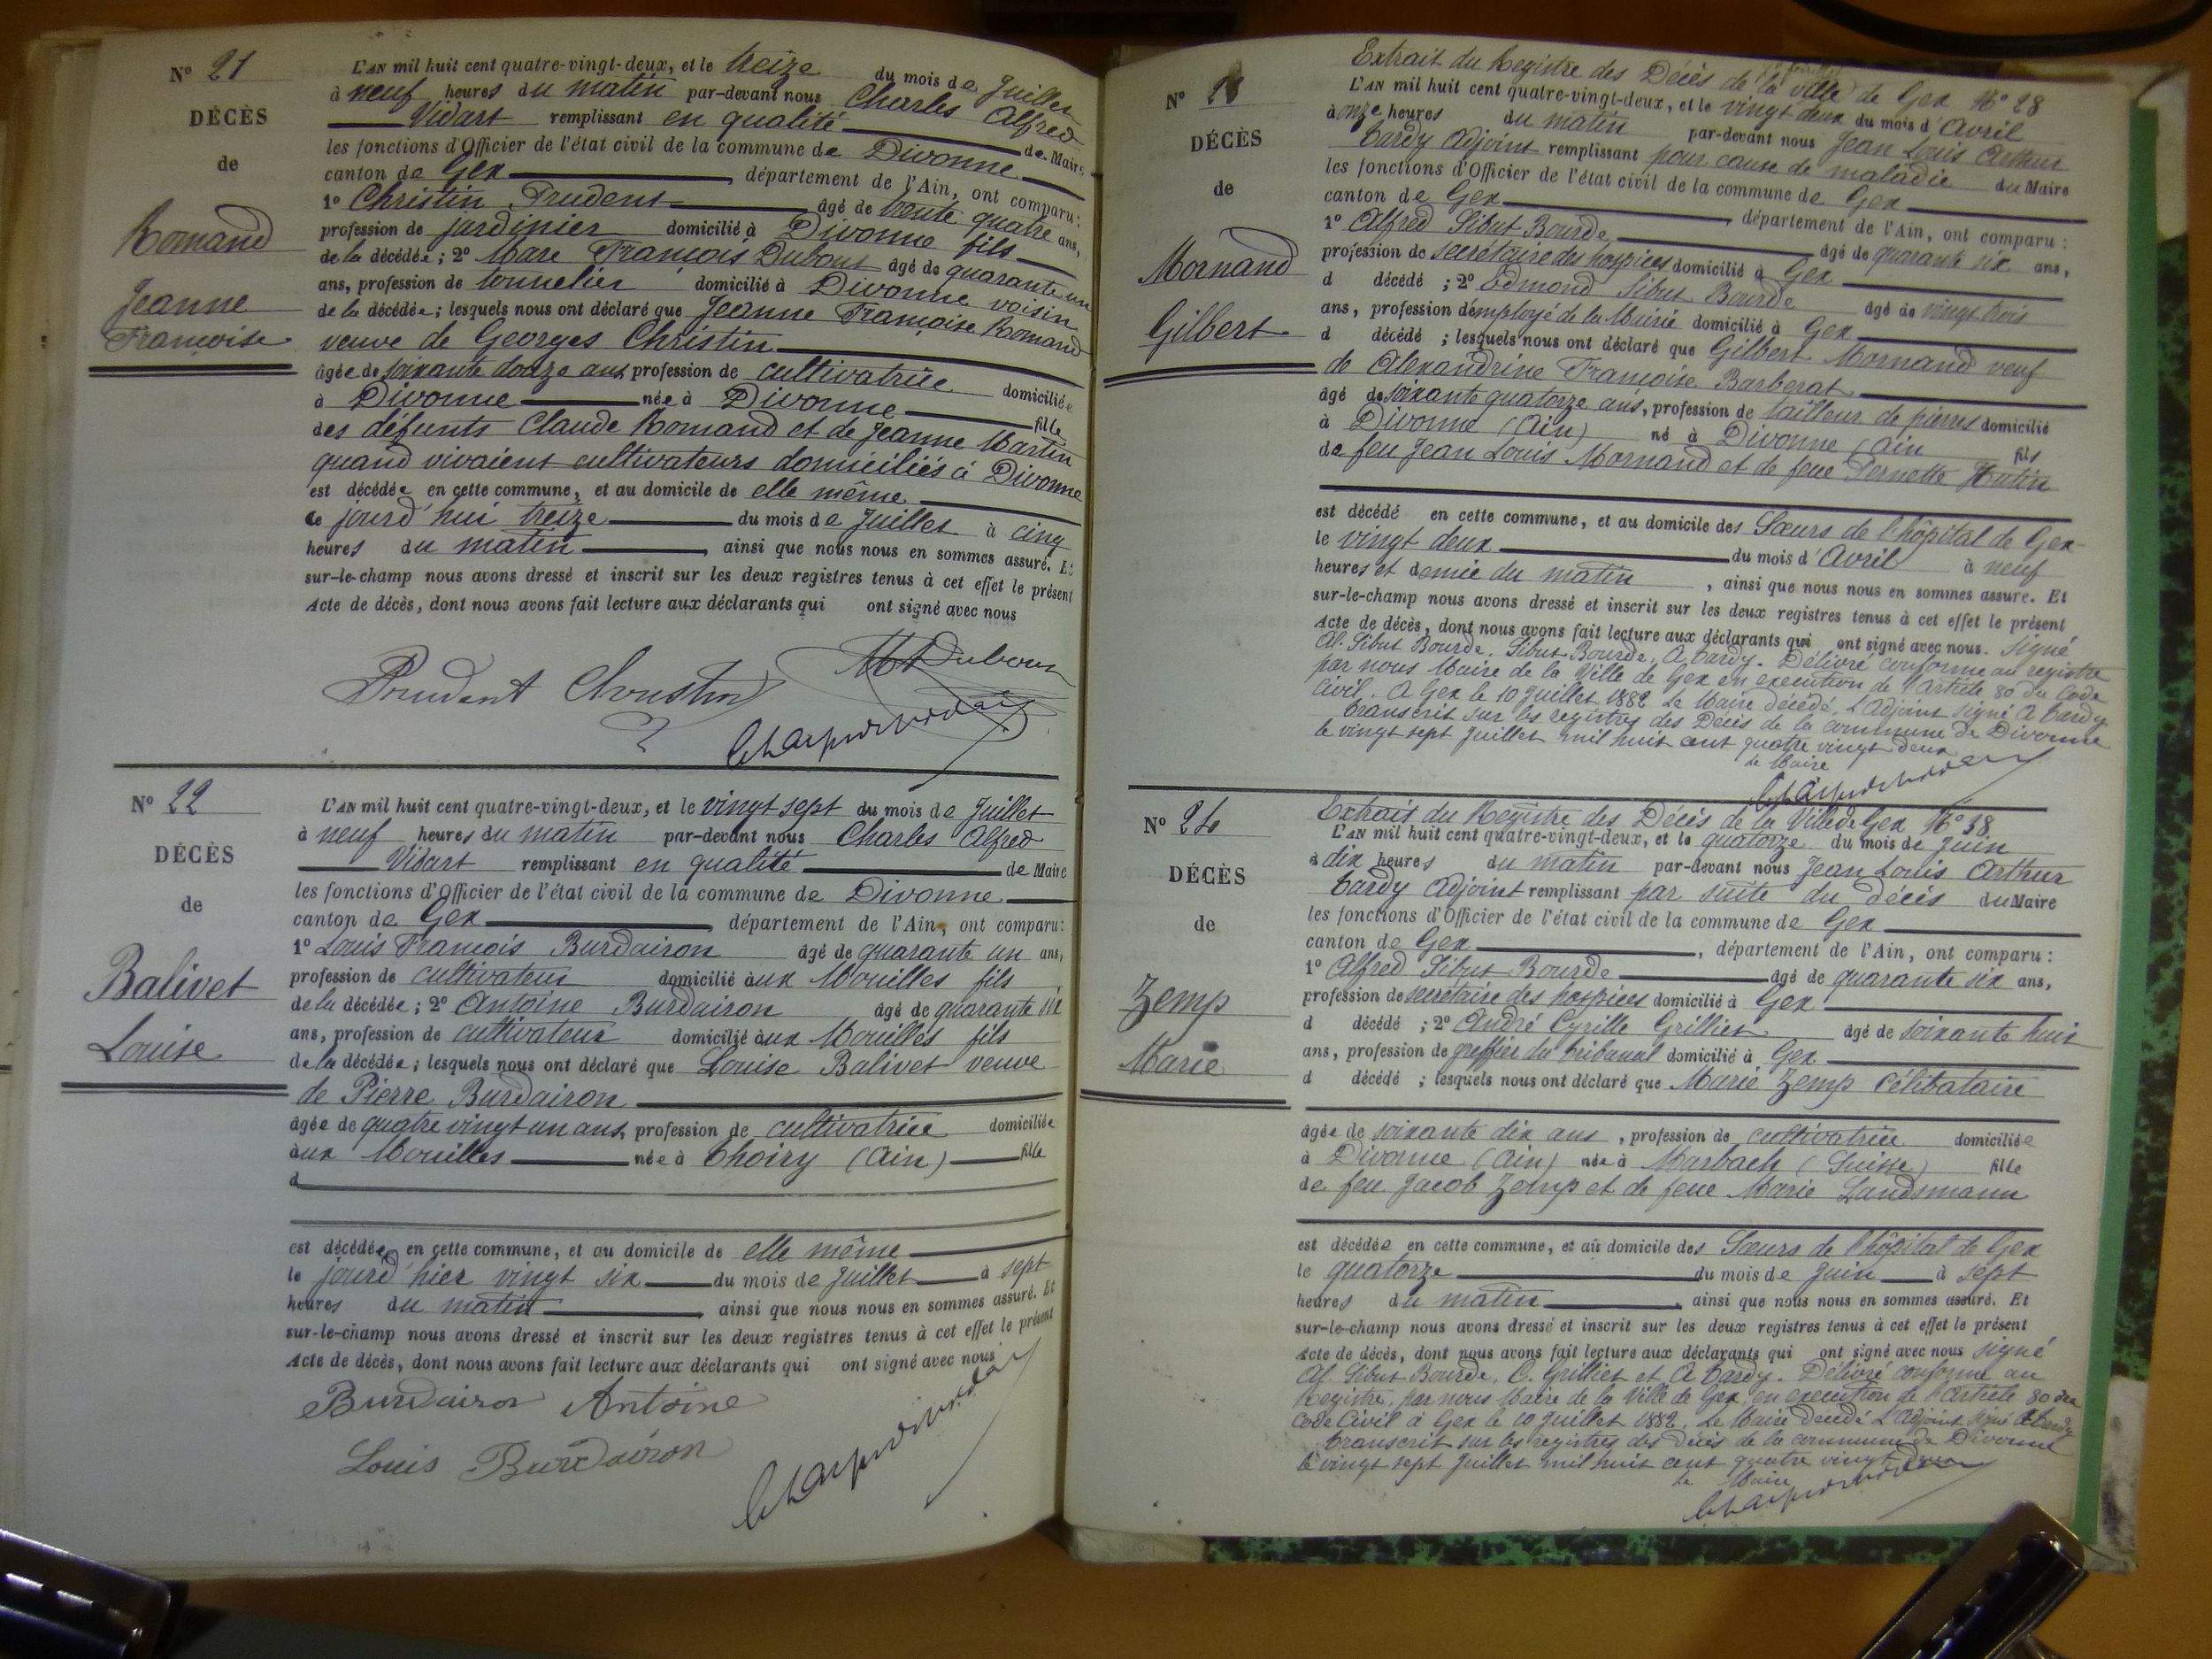 N° 21
DÉCÈS
de
Romand
Jeanne
Françoise
L'AN mil huit cent quatre-vingt-deux, et le treize du mois de Juillet
à neuf heures du matin par-devant nous Charles Alfred
Vidart remplissant en qualité de Maire
les fonctions d'Officier de l'état civil de la commune de Divonne
canton de Gex, département de l'Ain, ont comparu:
1° Christin Prudent âgé de trente quatre ans,
profession de jardinier domicilié à Divonne fils
de la décédée; 2° Marc François Dubout âgé de quarante un
ans, profession de tonnelier domicilié à Divonne voisin
de la décédée; lesquels nous ont déclaré que Jeanne Françoise Romand
veuve de Georges Christin
âgée de soixante douze ans, profession de cultivatrice domiciliée
à Divonne née à Divonne fille
des défunts Claude Romand et de Jeanne Martin
quand vivaient cultivateurs domiciliés à Divonne
est décédée en cette commune, et au domicile de elle même
ce jourd'hui treize du mois de Juillet à cinq
heures du matin, ainsi que nous nous en sommes assuré. Et
sur-le-champ nous avons dressé et inscrit sur les deux registres tenus à cet effet le présent
Acte de décès, dont nous avons fait lecture aux déclarants qui ont signé avec nous
Prudent Christin
N° 22
DÉCÈS
de
Balivet
Louise
L'AN mil huit cent quatre-vingt-deux, et le vingt sept du mois de Juillet
à neuf heures du matin par-devant nous Charles Alfred
Vidart remplissant en qualité de Maire
les fonctions d'Officier de l'état civil de la commune de Divonne
canton de Gex, département de l'Ain, ont comparu:
1° Louis François Burdairon âgé de quarante un ans,
profession de cultivateur domicilié aux Mouilles fils
de la décédée; 2° Antoine Burdairon âgé de quarante six
ans, profession de cultivateur domicilié aux Mouilles fils
de la décédée; lesquels nous ont déclaré que Louise Balivet veuve
de Pierre Burdairon
âgée de quatre vingt un ans, profession de cultivatrice domiciliée
aux Mouilles née à Thoiry (Ain) fille
d
est décédée en cette commune, et au domicile de elle même
le jourd'hier vingt six du mois de Juillet à sept
heures du matin, ainsi que nous nous en sommes assuré. Et
sur-le-champ nous avons dressé et inscrit sur les deux registres tenus à cet effet le présent
Acte de décès, dont nous avons fait lecture aux déclarants qui ont signé avec nous
Burdairon Antoine
Louis Burdairon
N°
DÉCÈS
de
Mornand
Gilbert
Extrait du Registre des Décès de la ville de Gex N° 28
L'AN mil huit cent quatre-vingt-deux, et le vingt deux du mois d'Avril
à onze heures du matin par-devant nous Jean Louis Arthur
Tardy Adjoint remplissant pour cause de maladie du Maire
les fonctions d'Officier de l'état civil de la commune de Gex
canton de Gex, département de l'Ain, ont comparu:
1° Alfred Sibut Bourde âgé de quarante six ans,
profession de secrétaire des hospices domicilié à Gex
d décédé; 2° Edmond Sibut Bourde âgé de vingt trois
ans, profession d'employé de la Mairie domicilié à Gex
d décédé; lesquels nous ont déclaré que Gilbert Mornand veuf
de Alexandrine Françoise Barberat
âgé de soixante quatorze ans, profession de tailleur de pierres domicilié
à Divonne (Ain) né à Divonne (Ain fils
de feu Jean Louis Mornand et de feue Pernette Hutin
est décédé en cette commune, et au domicile des Sœurs de l'hôpital de Gex
le vingt deux du mois d'Avril à neuf
heures et demie du matin, ainsi que nous nous en sommes assuré. Et
sur-le-champ nous avons dressé et inscrit sur les deux registres tenus à cet effet le présent
Acte de décès, dont nous avons fait lecture aux déclarants qui ont signé avec nous. Signé
Al. Sibut Bourde, Sibut Bourde, A. Tardy. Délivré conforme au registre
par nous Maire de la Ville de Gex en exécution de l'Article 80 du Code
Civil. A Gex le 10 Juillet 1882 Le Maire décédé, L'Adjoint signé A Tardy
Transcrit sur les registres des Décès de la commune de Divonne
le vingt sept Juillet mil huit cent quatre vingt deux
Le Maire
N° 24
DÉCÈS
de
Zemp
Marie
Extrait du Registre des Décès de la Ville de Gex N° 38
L'AN mil huit cent quatre-vingt-deux, et le quatorze du mois de Juin
à dix heures du matin par-devant nous Jean Louis Arthur
Tardy Adjoint remplissant par suite du décès du Maire
les fonctions d'Officier de l'état civil de la commune de Gex
canton de Gex, département de l'Ain, ont comparu:
1° Alfred Sibut Bourde âgé de quarante six ans,
profession de secrétaire des hospices domicilié à Gex
d décédé; 2° André Cyrille Grilliet âgé de soixante huit
ans, profession de greffier du tribunal domicilié à Gex
d décédé; lesquels nous ont déclaré que Marie Zemp Célibataire
âgée de soixante dix ans, profession de cultivatrice domiciliée
à Divonne (Ain) née à Marbach (Suisse) fille
de feu Jacob Zemp et de feue Marie Landsmann
est décédée en cette commune, et au domicile des Sœurs de l'hôpital de Gex
le quatorze du mois de Juin à sept
heures du matin, ainsi que nous nous en sommes assuré. Et
sur-le-champ nous avons dressé et inscrit sur les deux registres tenus à cet effet le présent
Acte de décès, dont nous avons fait lecture aux déclarants qui ont signé avec nous signé
Al. Sibut Bourde, C. Grilliet et A Tardy. Délivré conforme au
Registre, par nous Maire de la Ville de Gex, en exécution de l'Article 80 du
Code Civil à Gex le 10 Juillet 1882. Le Maire décédé L'Adjoint signé A Tardy
Transcrit sur les registres des décès de la commune de Divonne
le vingt sept Juillet mil huit cent quatre vingt deux
Le Maire